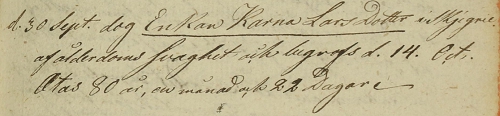 d. 30 Sept. dog Enkan Karna Lars Dotter i Skjegrie
af ålderdoms svaghet och begrofs d. 14. Oct.
Ætas 80 år, en månad och 22 Dagar